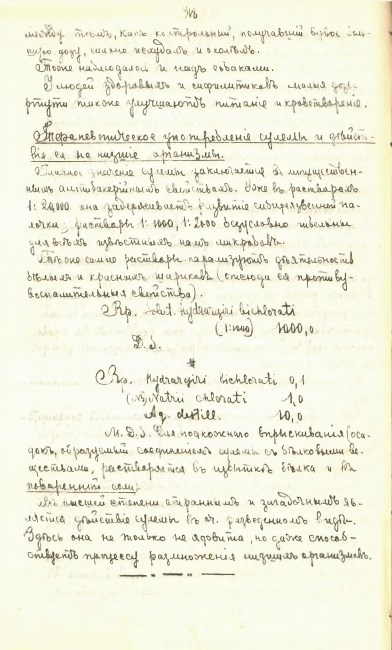 318
между тѣмъ, какъ контрольный, получавшій болѣе боль-
шую дозу, сильно исхудалъ и околѣлъ.
Тоже наблюдалось и надъ собаками.
У людей здоровыхъ и сифилитиковъ малыя дозы
ртути также улучшаютъ питаніе и кровотвореніе.
Терапевтическое употребленіе сулемы и дѣйст-
віе ея на низшіе организмы.
Главное значеніе сулемы заключается въ могуществен-
ныхъ антибактерійныхъ свойствахъ. Уже въ растворахъ
1:20,000 она задерживаетъ развитіе сибиреязвенной па-
лочки; растворы 1:1000, 1:2000 безусловно гибельны
для всѣхъ извѣстныхъ намъ микробовъ.
Тѣ же самые растворы парализуютъ дѣятельность
бѣлыхъ и красныхъ шариковъ (отсюда ея противу-
воспалительныя свойства).
Rp. Solut. Hydrargiri bichlorati
(1:1000) 1000,0
D.S.
#
Rp. Hydrargiri bichlorati 0,1
Natrii chlorati 1,0
Aq. destill. 10,0
M.D.S. Для подкожнаго впрыскиванія (оса-
докъ, образуемый соединеніемъ сулемы съ бѣлковыми ве-
ществами, растворяется въ избыткѣ бѣлка и въ
поваренной соли).
Въ высшей степени страннымъ и загадочнымъ яв-
ляется дѣйствіе сулемы въ оч. разведенномъ видѣ.
Здѣсь она не только не ядовита, но даже способ-
ствуетъ процессу размноженія низшихъ организмовъ.